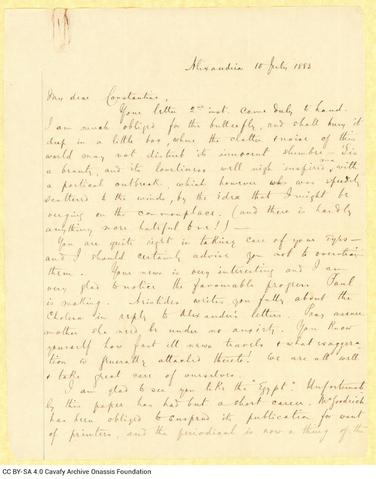 Alexandria 10 July 1883
My dear Constantine,
Your letter 2nd inst. came duly to hand.
I am much obliged for the butterfly, and shall bury it
deep in a little box, where the clatter & noise of this
world may not disturb its innocent slumber. 'Tis
a beauty, and its loveliness well nigh inspired me with
a poetical outbreak, which however was speedily
scattered to the winds, by the idea that I might be
verging on the commonplace. (and there is hardly
anything more hateful to me!!) —
You are quite right in taking care of your eyes —
and I should certainly advise you not to overstrain
them. Your news is very interesting and I am
very glad to notice the favourable progress Paul
is making. Aristides writes you fully about the
Cholera in reply to Alexander's letters. Pray assure
mother she need be under no anxiety. You know
yourself how fast ill news travels & what exaggera-
tion is generally attached thereto! We are all well
& take great care of ourselves.
I am glad to see you like the "Egypt". Unfortunate-
ly this paper has had but a short career. McGoodrich
has been obliged to suspend its publication for want
of printers, and the periodical is now a thing of the
CC BY-SA 4.0 Cavafy Archive Onassis Foundation